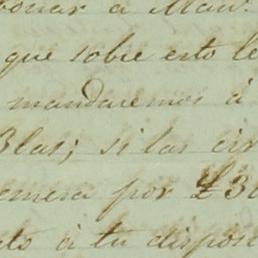 á Man.
que sobre esto le
mandaremos á
Blas; si las cir
por £30
á tu dispos